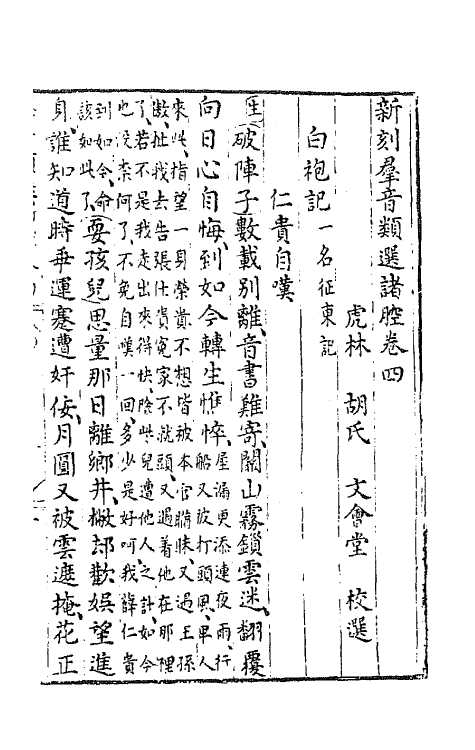 新刻羣音類選諸腔卷四
虎林 胡氏 文會堂 校選
白袍記一名征東記
仁貴自嘆
生破陣子數載别離音書難寄關山霧鎖雲迷翻覆
向日心自悔到如今轉生憔悴屋漏更添連夜雨行船又被打頭風卑人
來此指望一身榮貴不想皆被本官瞞昧又過王孫
扯我去告張仕貴寃家不就頭又遇着他在那裡
了若不是我走出來得快險些兒遭他人之計如今
也沒奈何了不免自嘆一回多少是好呵我薛仁貴
到如今命該如此了耍孩兒思量那日離鄉井撇却歡娛望進
身誰知道時乖運蹇遭奸佞月圓又被雲遮掩花正